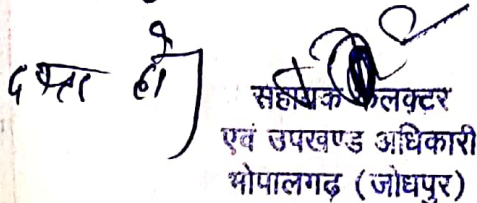 सहायक कलक्टर
एवं उपखण्ड अधिकारी
भोपालगढ़ (जोधपुर)